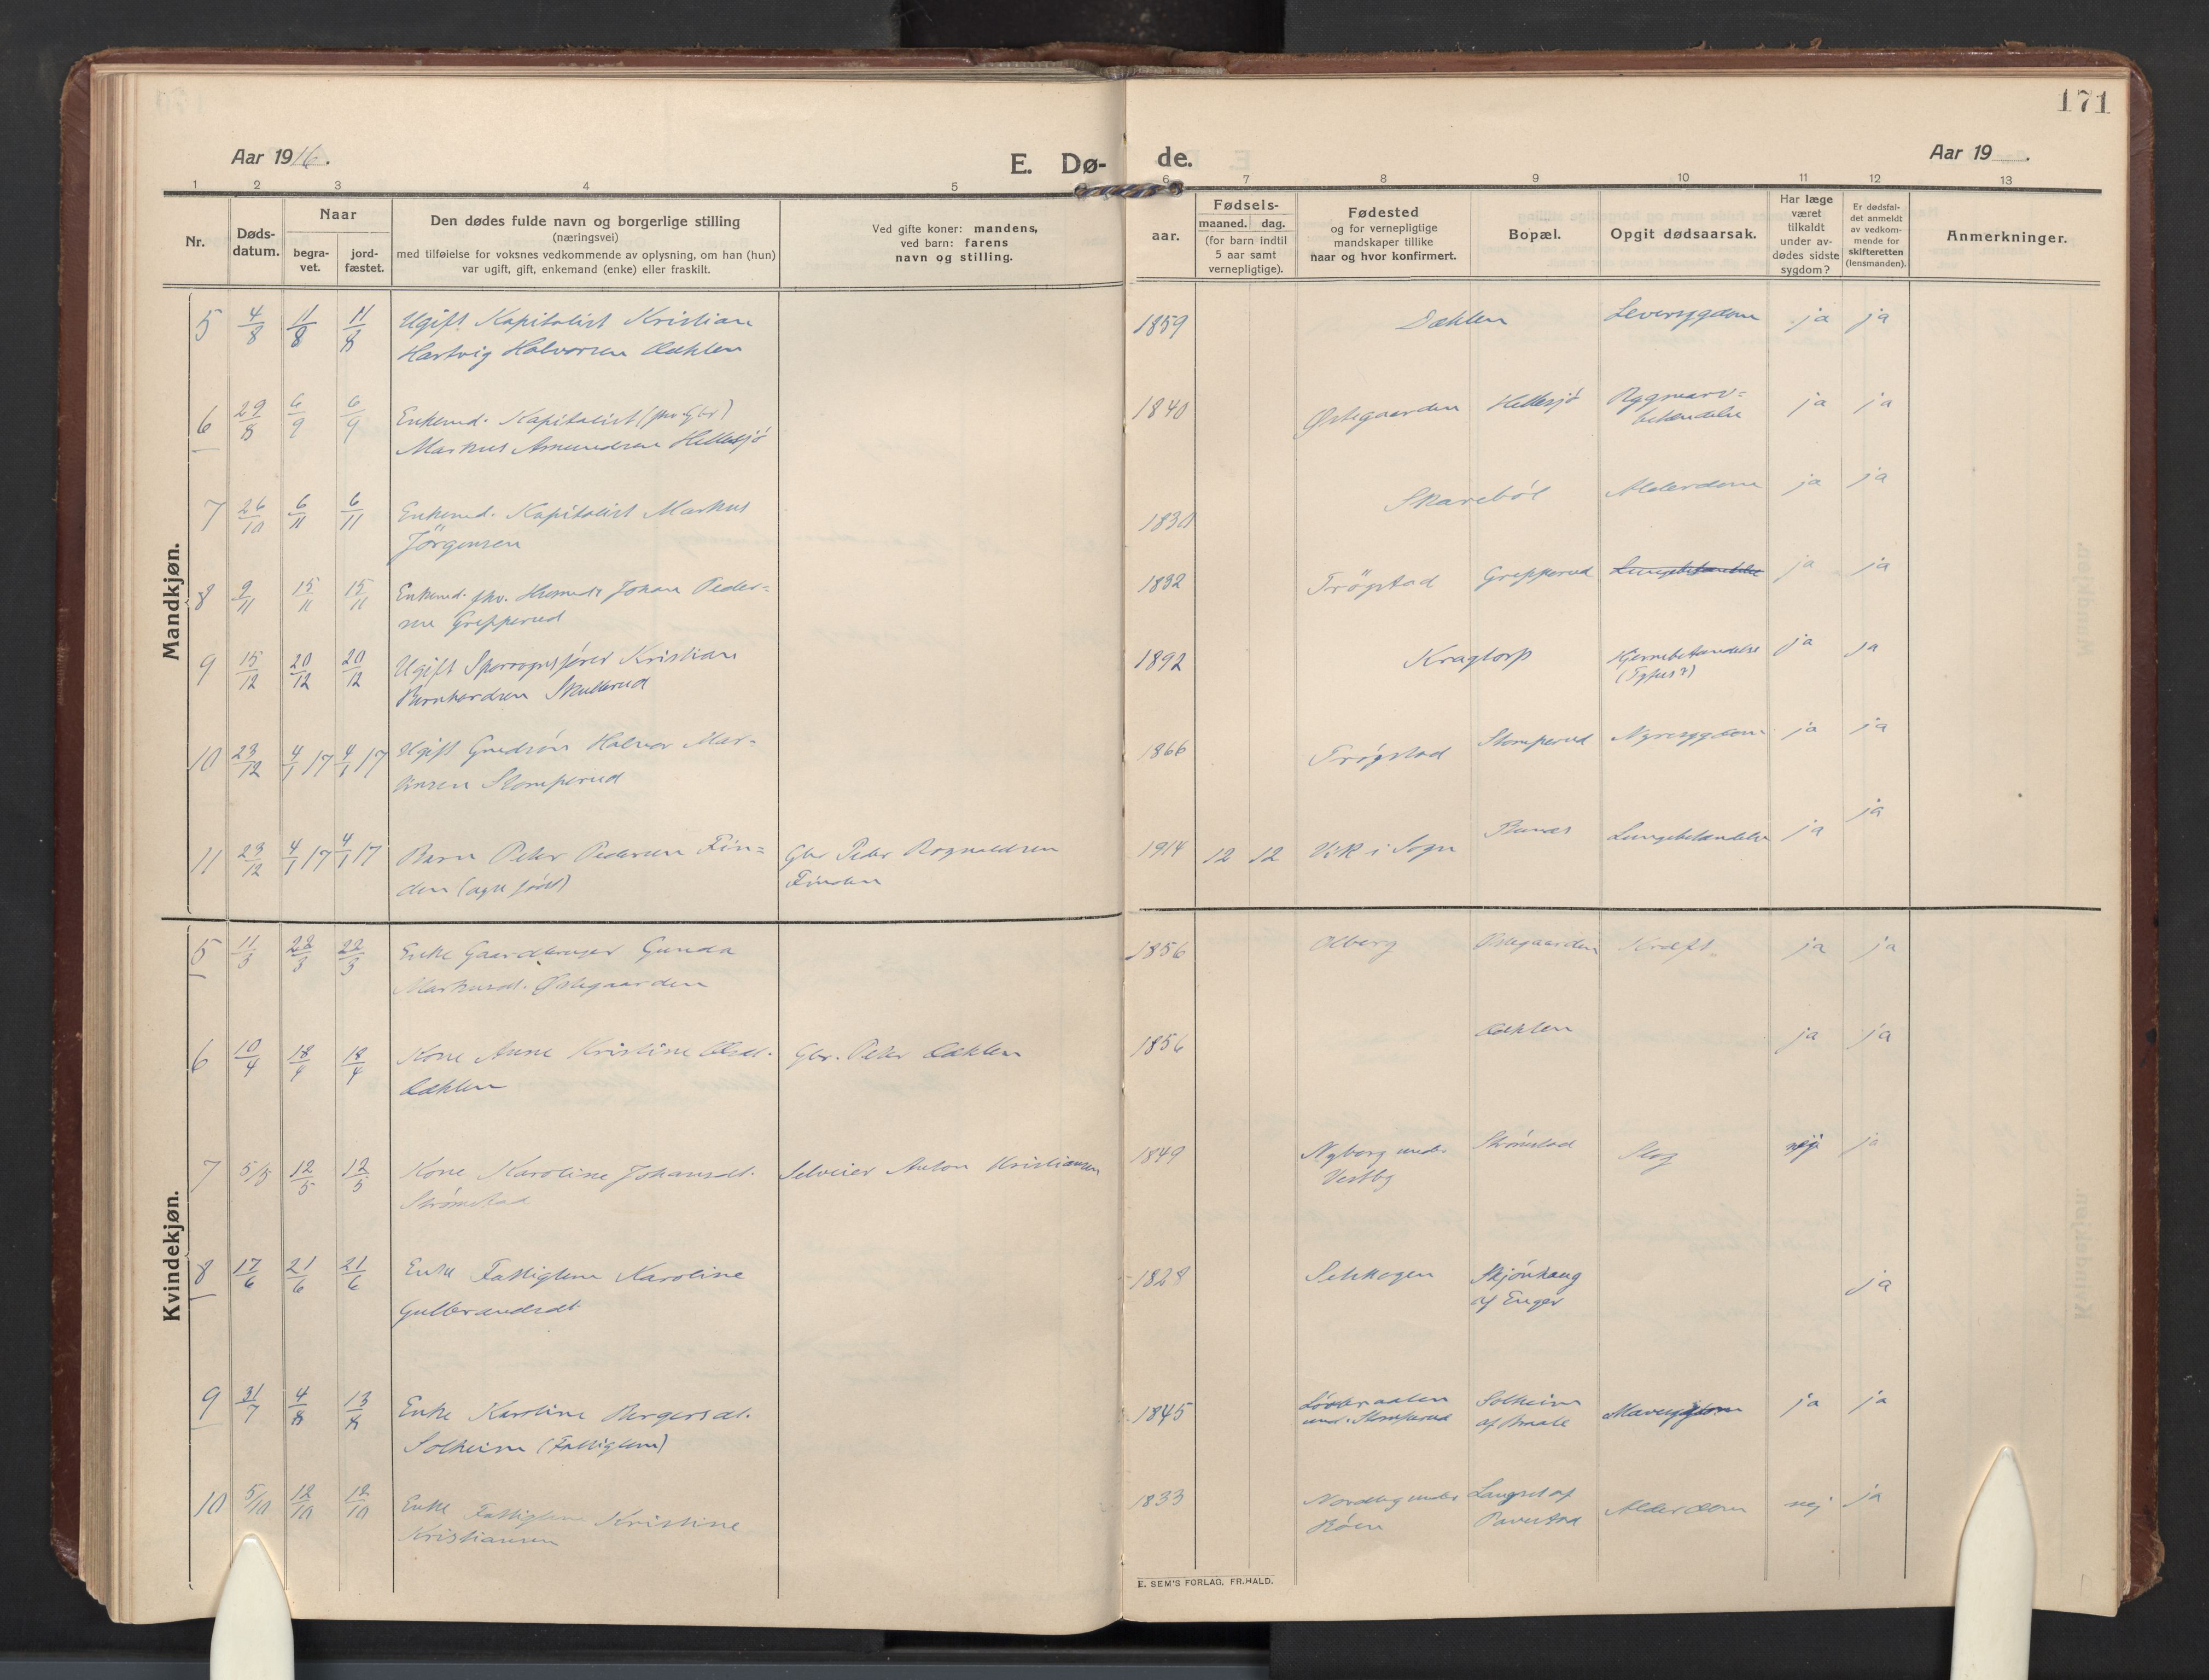 171
Aar 1916.
E. Dø-
de.
Aar 19 .
1 2 3 4 5 6 7 8 9 10 11 12 13
Nr.
Døds-
datum.
Naar
begra-
vet.
jord-
fæstet.
Den dødes fulde navn og borgerlige stilling
(næringsvei)
med tilføielse for voksnes vedkommende av oplysning, om han (hun)
var ugift, gift, enkemand (enke) eller fraskilt.
Ved gifte koner: mandens,
ved barn: farens
navn og stilling.
Fødsels-
aar.
maaned. dag.
(for barn indtil
5 aar samt
vernepligtige).
Fødested
og for vernepligtige
mandskaper tillike
naar og hvor konfirmert.
Bopæl.
Opgit dødsaarsak.
Har læge
været
tilkaldt
under av-
dødes sidste
sygdom?
Er dødsfal-
det anmeldt
av vedkom-
mende for
skifteretten
(lensmanden).
Anmerkninger.
Mandkjøn.
5 4/8 11/8 11/8 Ugift Kapitalist Kristian 1859 Dæhlen Leversygdom ja ja
Hartvig Halvorsen Dæhlen
6 29/8 6/9 6/9 Enkemd. Kapitalist (fhv. Gbr) 1840 Østegaarden Hellesjö Rygmarvs-
betændelse ja ja
Markus Amundsen Hellesjö
7 26/10 6/11 6/11 Enkemd. Kapitalist Markus 1830 Skareböl Alderdom ja ja
Jörgensen
8 9/11 15/11 15/11 Enkemd. fhv. Husmd. Johan Peder- 1832 Trögstad Grepperud Lungebetændelse ja ja
sen Grepperud
9 15/12 20/12 20/12 Ugift Sporvognsfører Kristian 1892 Kragtorp Hjernebetændelse
(Tyfus?) ja ja
Bernhardsen Skullerud
10 23/12 4/1 17 4/1 17 Ugift Halvor Mar- 1866 Trögstad Stomperud Nyresygdom ja ja
tinsen Stomperud
11 23/12 4/1 17 4/1 17 Barn Peter Pedersen Fin- Gbr Peder Ragnvaldsen 1914 12 12 Vik i Sogn Lungebetændelse ja ja
den Finden
Kvindekjøn.
5 11/3 22/3 22/3 Enke Gaardbruger Gunda 1856 Olberg Østegaarden Kræft ja ja
Markusdt. Østegaarden
6 10/4 18/4 18/4 Kone Anne Kristine Olsdt. Gbr. Peter Dæhlen 1856 Dæhlen ja ja
Dæhlen
7 5/5 12/5 12/5 Kone Karoline Johansdt. Selveier Anton Kristiansen 1849 Nyborg under
Vestby Strömstad Slag nej ja
Strömstad
8 17/6 21/6 21/6 Enke Fattiglem Karoline 1828 Sekkogen Skjönhaug
af Enger ja
Gulbrandsdt.
9 31/7 4/8 13/8 Enke Karoline Bergersdt. 1845 und. Stomperud Solheim
af Mavesygdom ja ja
Solheim (Fattiglem)
10 5/10 12/10 12/10 Enke Fattiglem Kristine 1833 Nordby under Langset af
Alderdom nej ja
Kristiansen
E. SEM'S FORLAG, FR.HALD.